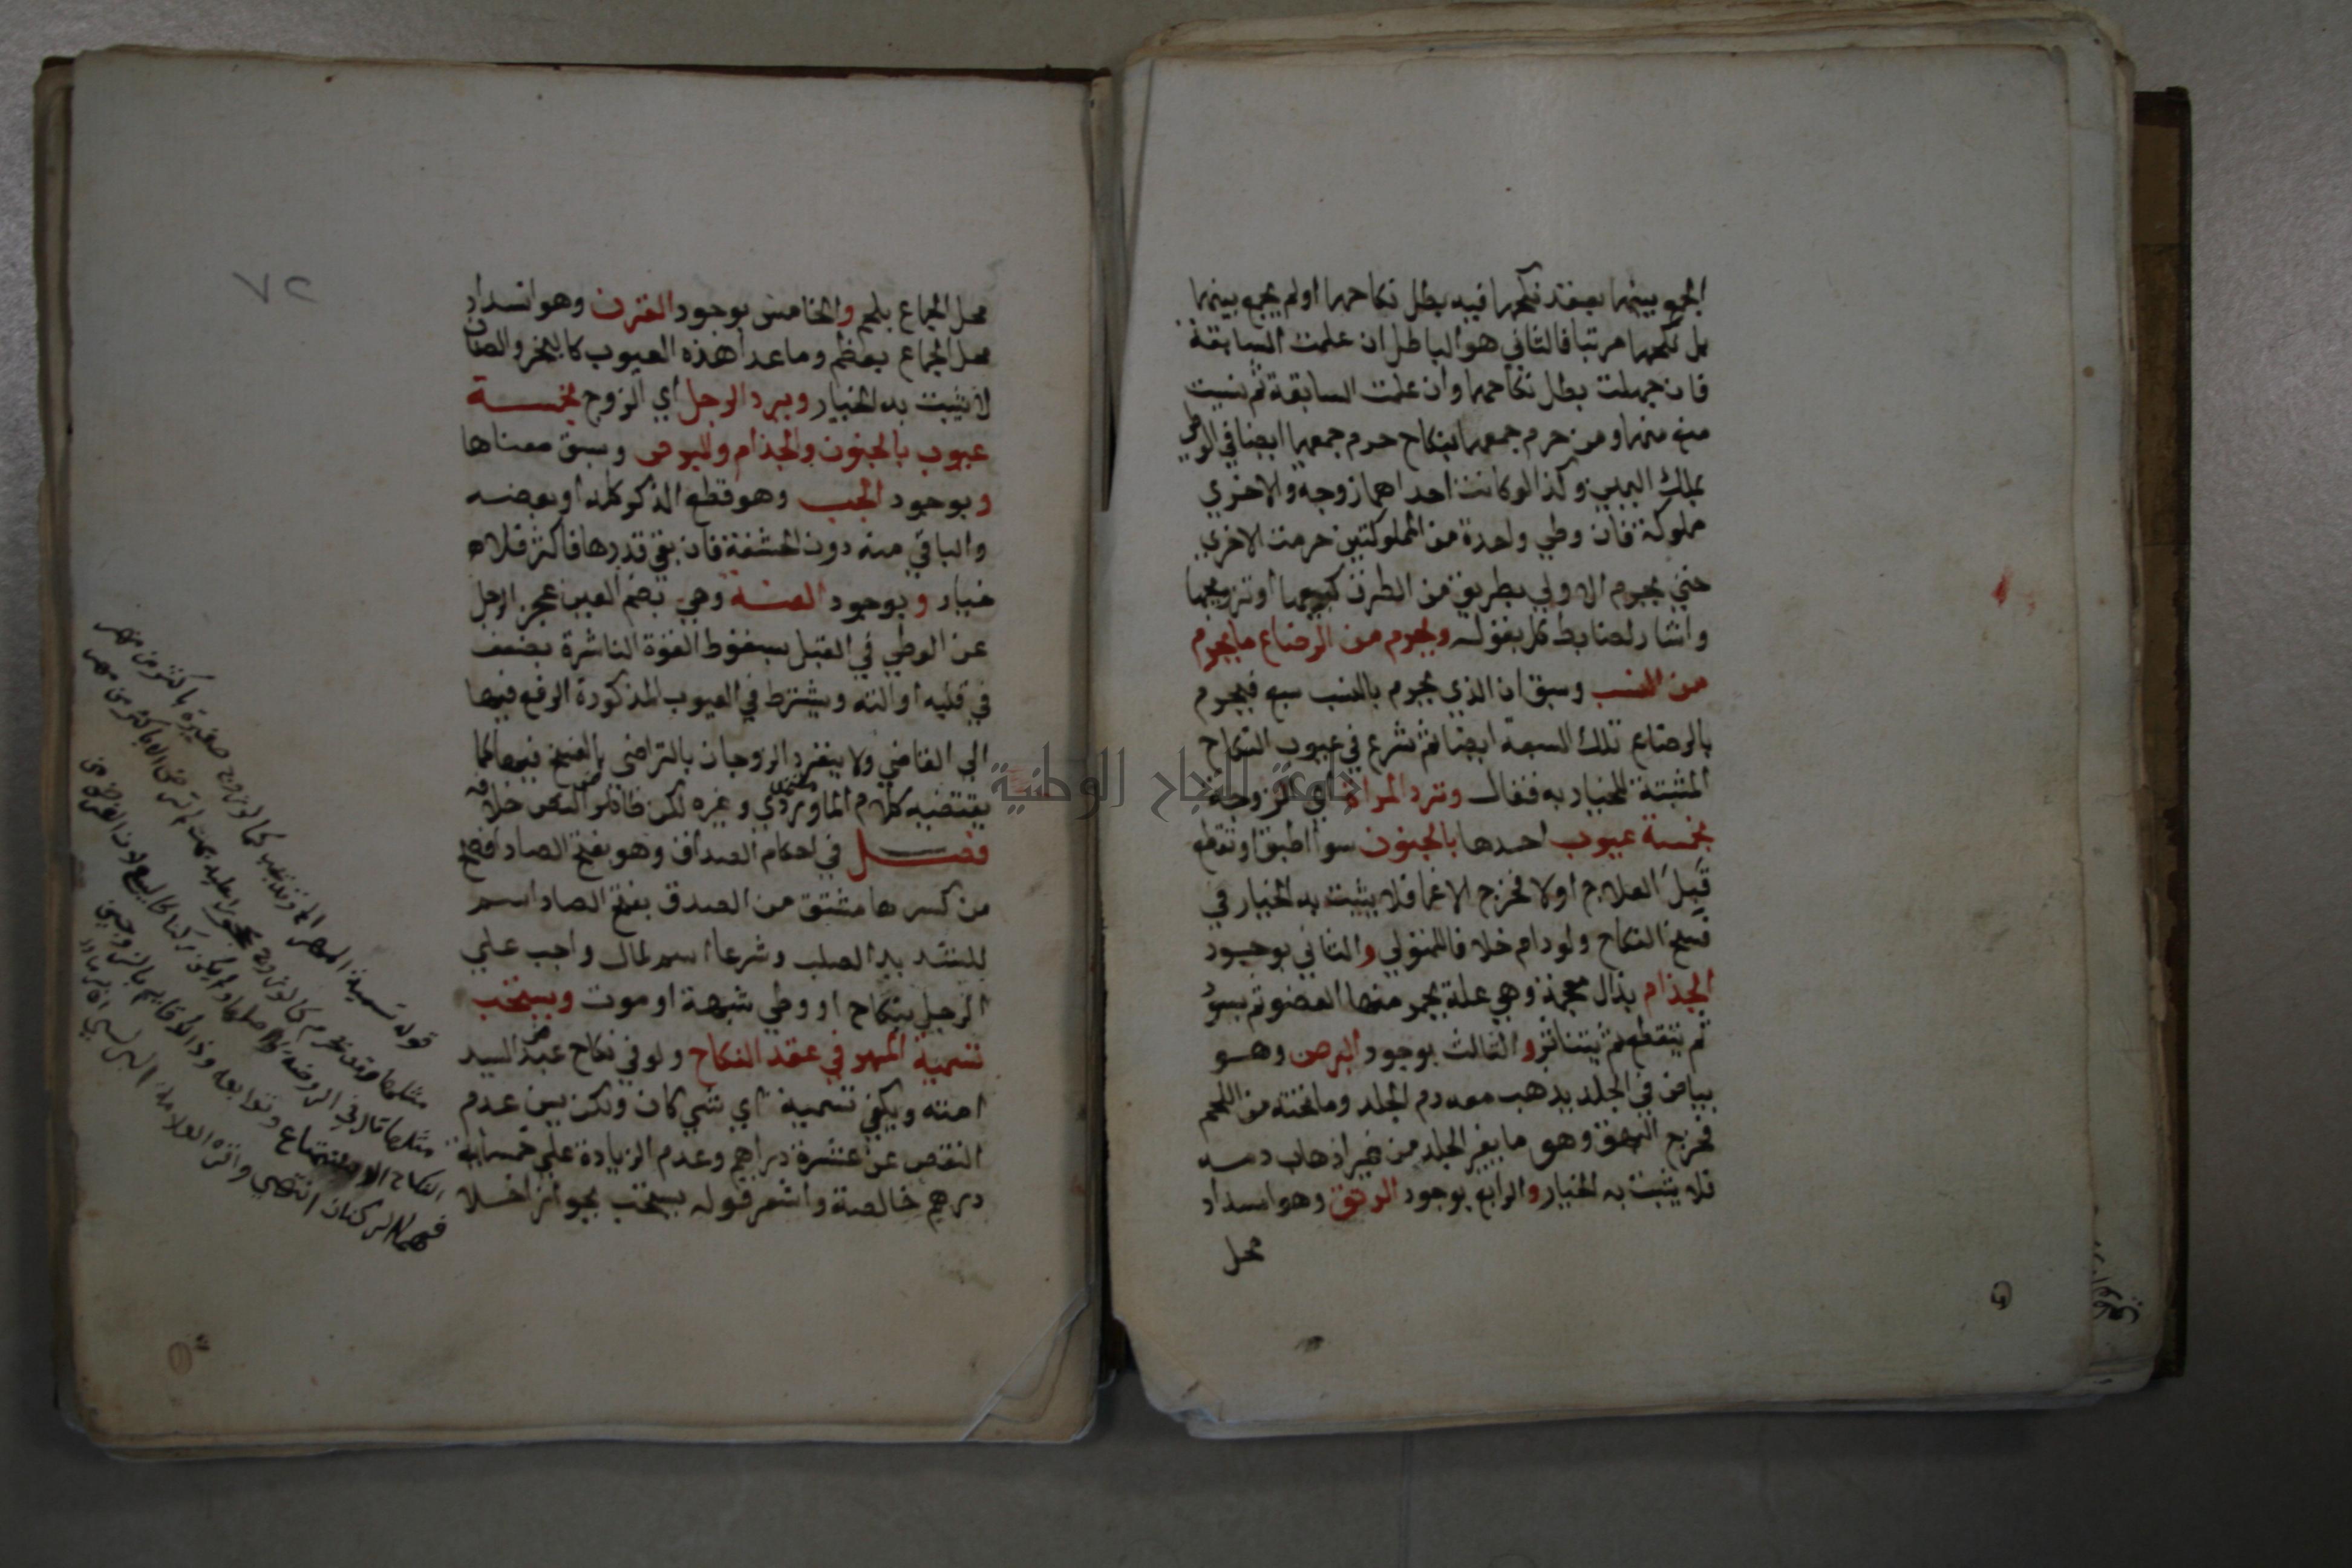 الجمع بينهما بعقد نكحهما فيه بطل نكاحهما او لم يجمع بينهما
بل نكحهما مرتبا فالثاني هو الباطل ان علمت السابقة
فان جهلت بطل نكاحهما وان علمت السابقة ثم نسيت
منع منهما ومن حرم جمعهما بنكاح حرم جمعهما ايضا في الوطي
بملك اليمين وكذا لو كانت احداهما زوجه والاخري
مملوكة فان وطي واحدة من المملوكتين حرمت الاخري
حتي يحرم الاولي بطريق من الطرق كبيعها او تزويجها
واشار لضابط كلي بقوله ويحرم من الرضاع ما يحرم
من النسب وسبق ان الذي يحرم بالنسب سبع فيحرم
بالرضاع تلك السبعة ايضا ثم شرع في عيوب النكاح
المثبتة للخيار به فقال وترد المراة اي الزوجة
بخمسة عيوب احدها بالجنون سوا اطبق او تقطع
قبل العلاج اولا فخرج الاغما فلا يثبت به الخيار في
فسخ النكاح ولو دام خلافا للمتولي والثاني بوجود
الجذام بذال معجمة وهي علة يحمر منها العضو ثم يسود
ثم يتقطع ثم يتناثر والثالث بوجود البرص وهو
بياض في الجلد يذهب معه دم الجلد وما تحته من اللحم
فخرج البهق وهو ما يغير الجلد من غير اذهاب دمه
فلا يثبت به الخيار والرابع بوجود الرتق وهو انسداد
محل
٧٢
محل الجماع بلحم والخامس بوجود القرن وهو انسداد
محل الجماع بعظم وما عدا هذه العيوب كالبخر والصنان
لا يثبت به الخيار ويرد الرجل اي الزوج بخمسة
عيوب بالجنون والجذام والبرص وسبق معناها
وبوجود الجب وهو قطع الذكر كله او بعضه
والباقي منه دون الحشفة فان بقي قدرها فاكثر فلا
خيار وبوجود العنة وهي بضم العين عجز الرجل
عن الوطي في القبل بسقوط القوة الناشرة بضعف
في قلبه او الته ويشترط في العيوب المذكورة الرفع فيها
الي القاضي ولا ينفرد الزوجان بالتراضي بالفسخ فيها كما
يقتضيه كلام الماوردي وغيره لكن ظاهر النص خلافه
فصل في احكام الصداق وهو بفتح الصاد افصح
من كسرها مشتق من الصدق بفتح الصاد اسم
للشديد الصلب وشرعا اسم لمال واجب علي
الرجل بنكاح او وطي شبهة او موت ويستحب
تسمية المهر في عقد النكاح ولو في نكاح عبد السيد
امته ويكفي تسمية اي شي كان ولكن يسن عدم
النقص عن عشرة دراهم وعدم الزيادة علي خمسماية
درهم خالصة واشعر قوله يستحب بجواز اخلا
قوله تسمية المهر الخ وقد تجب كما لو زوج صغيرة باكثر من مهر